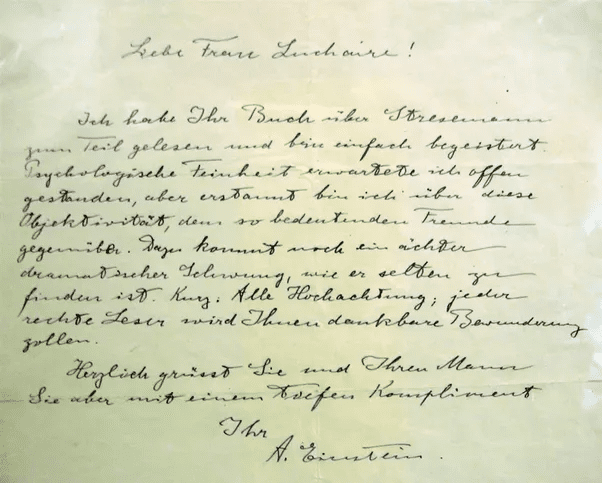 Liebe Frau Luchaire!
Ich habe Ihr Buch über Stresemann
zum Teil gelesen und bin einfach begeistert.
Psychologische Feinheit erwartete ich offen
gestanden, aber erstaunt bin ich über diese
Objektivität, dem so bedeutenden Freunde
gegenüber. Dazu kommt noch ein ächter
dramatischer Schwung, wie er selten zu
finden ist. Kurz: Alle Hochachtung; jeder
rechte Leser wird Ihnen dankbare Bewunderung
zollen.
Herzlich grüsst Sie und Ihren Mann
Sie aber mit einem tiefen Kompliment
Ihr
A. Einstein.